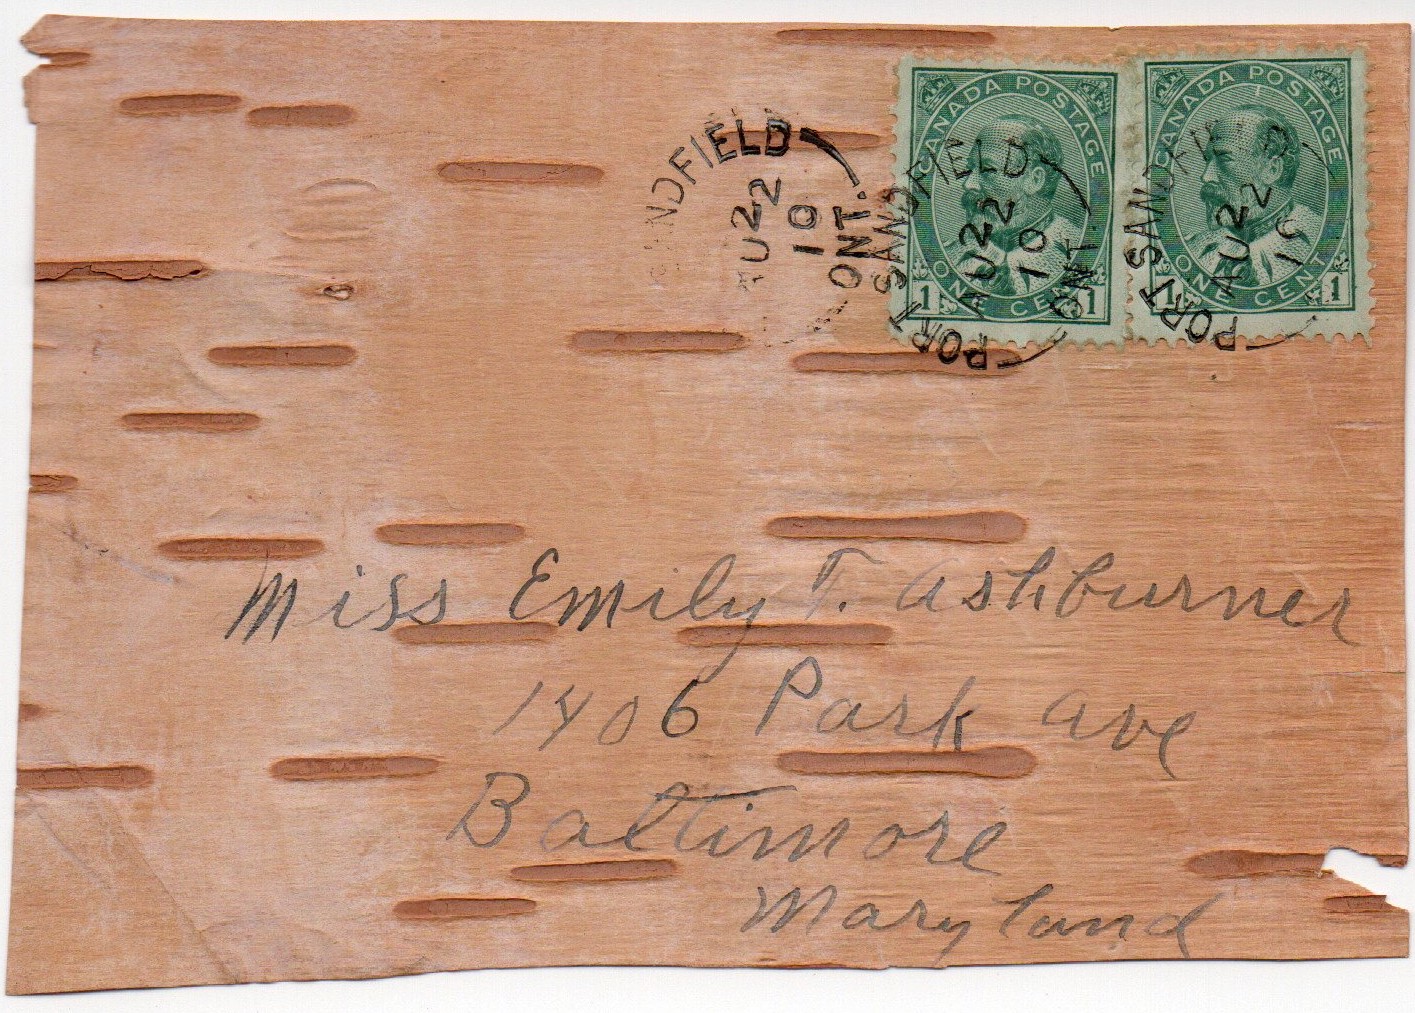 SANDFIELD
AU 22
10
ONT.
CANADA POSTAGE
ONE CENT
1 1
PORT SANDFIELD
AU 22
10
ONT.
CANADA POSTAGE
ONE CENT
1 1
PORT SANDFIELD
AU 22
10
Miss Emily T. Ashburner
1406 Park Ave
Baltimore
Maryland